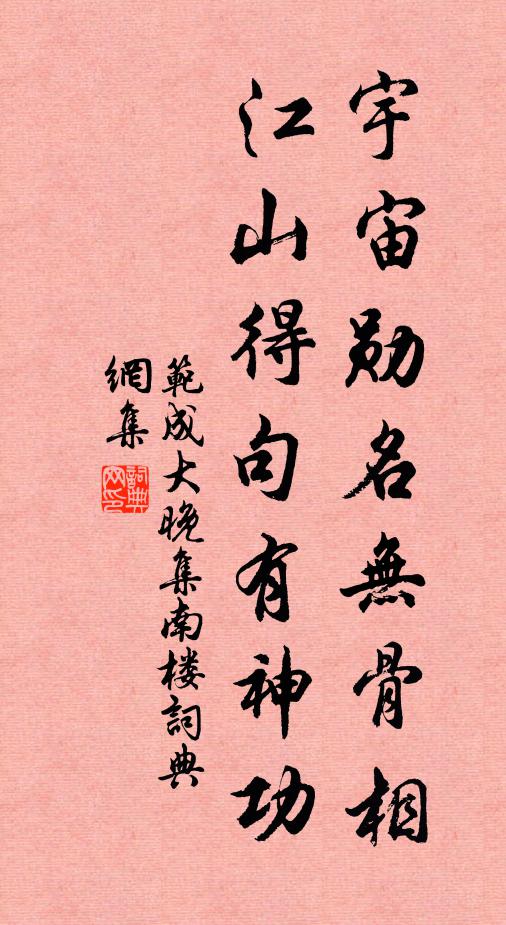 宇宙勋名無骨相
江山得句有神功
範成大晚集南楼詞典
網集
詞典網印